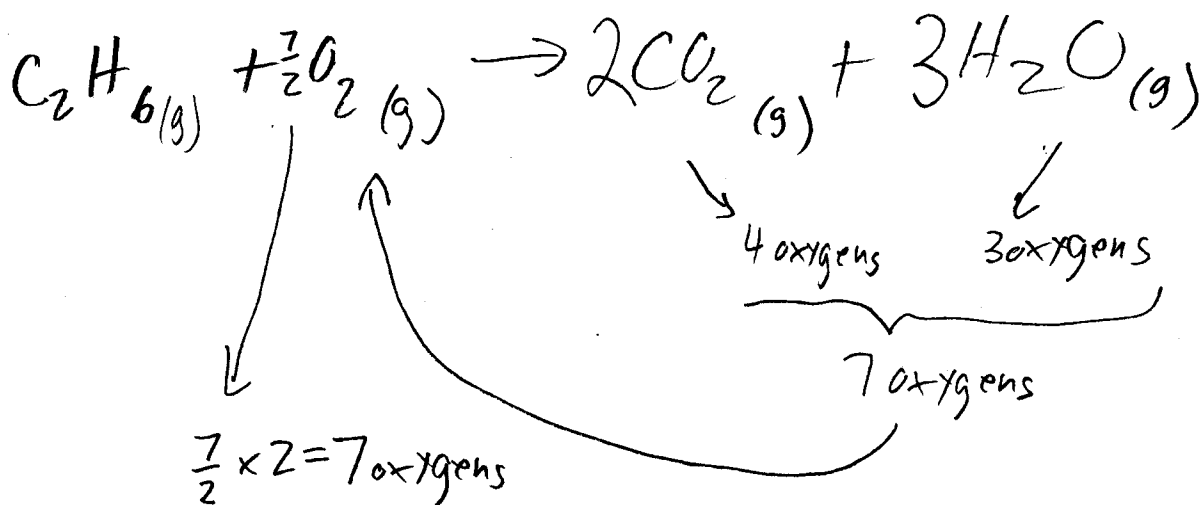 C₂H₆(g) + 7/2 O₂ (g) → 2CO₂ (g) + 3H₂O (g)
4 oxygens 3 oxygens
7 oxygens
7/2 × 2 = 7 oxygens